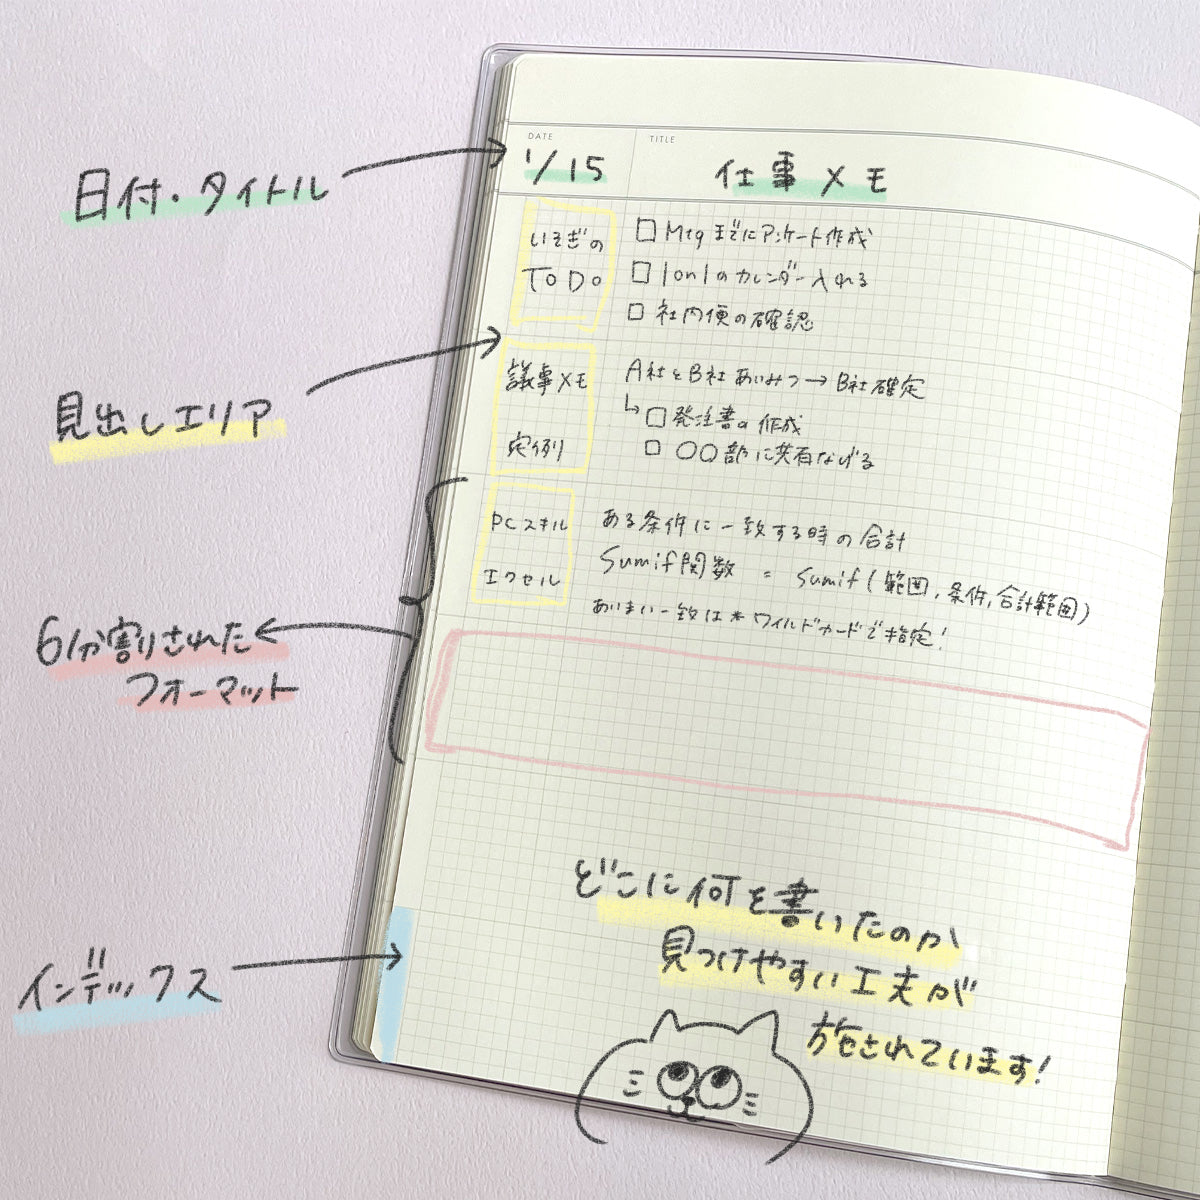 DATE
TITLE
1/15
仕事メモ
日付・タイトル
いそぎの
TO DO
□ Mtgまでにアンケート作成
□ 1on1のカレンダー入れる
□ 社内便の確認
見出しエリア
議事メモ
定例
A社とB社あいみつ→B社確定
↳□発注書の作成
□ 〇〇部に共有なげる
PCスキル
エクセル
ある条件に一致する時の合計
Sumif関数 = Sumif(範囲,条件,合計範囲)
あいまい一致は*ワイルドカードで指定!
6分割された
フォーマット
インデックス
どこに何を書いたのか
見つけやすい工夫が
施されています!